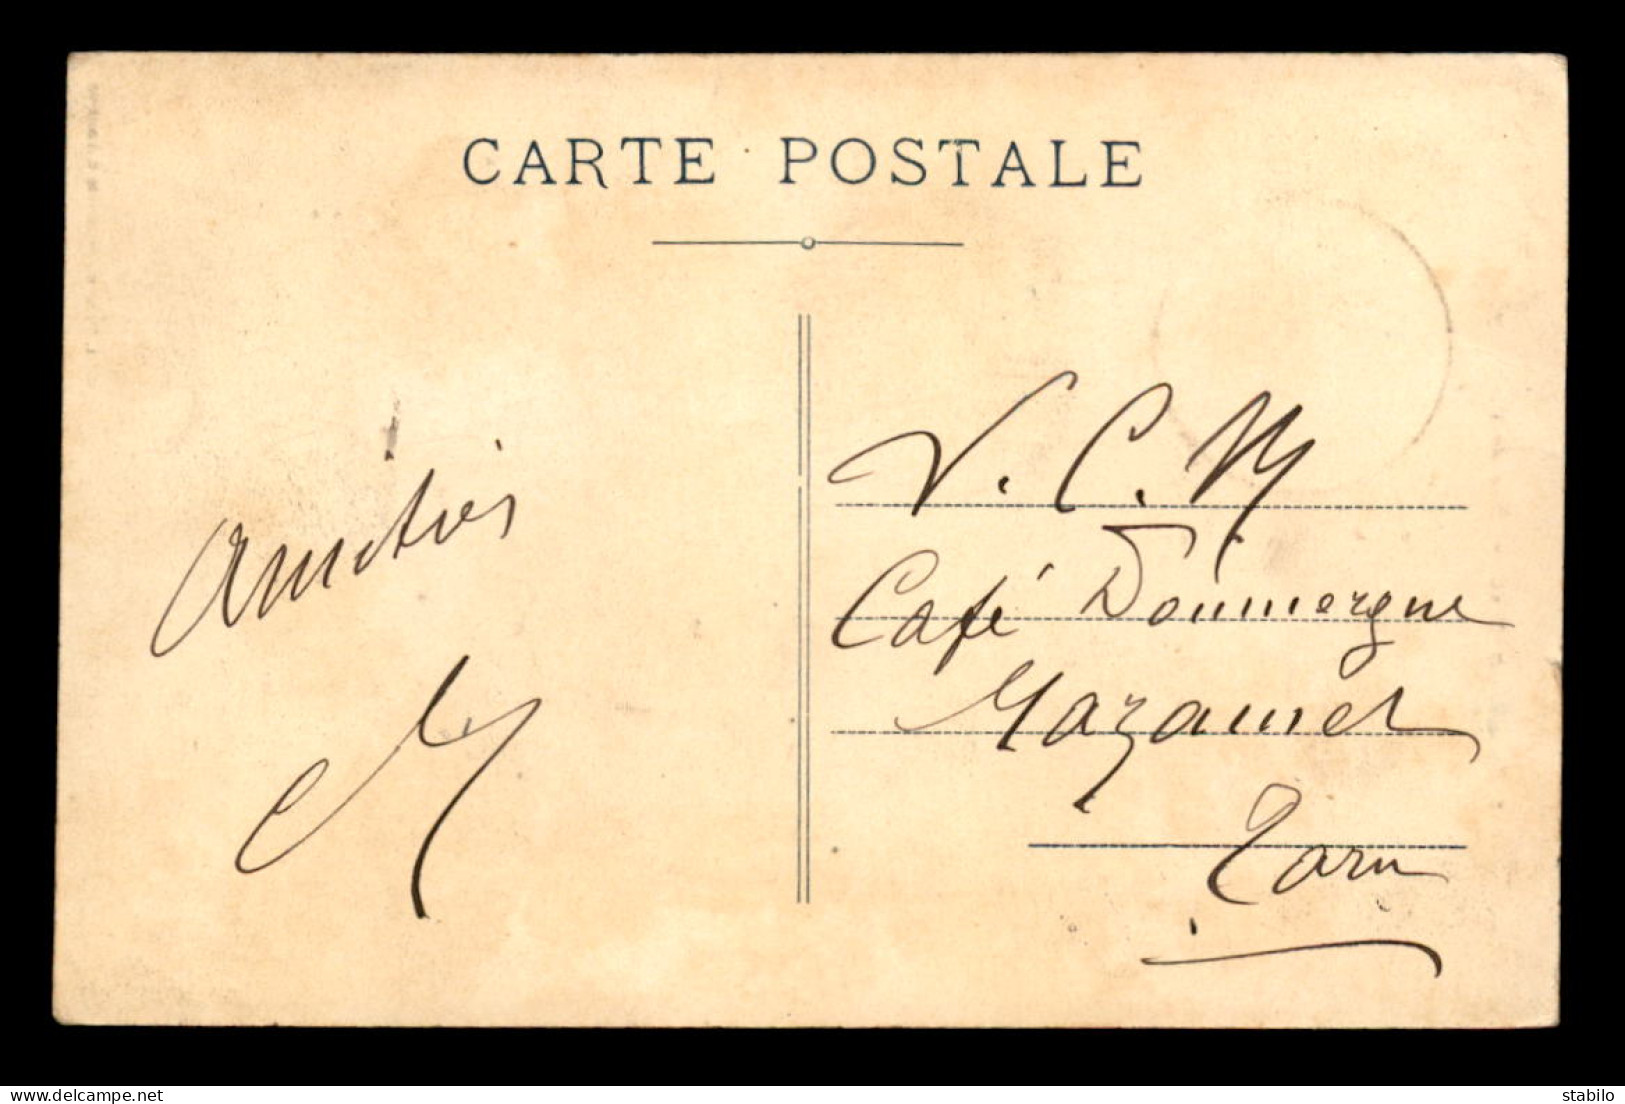 CARTE POSTALE
Amitiés
V. C. M
Café Doumergue
Mazamet
Tarn
www.delcampe.net
stabilo